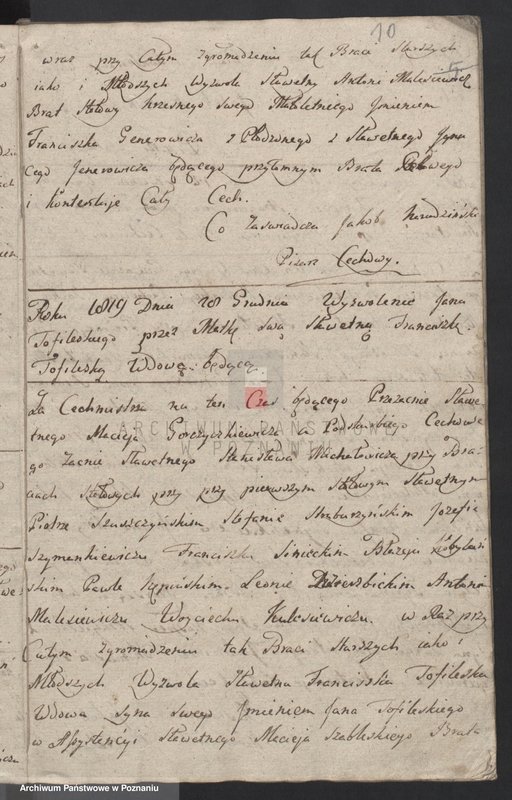 10
wraz przy Całym zgromadzeniu tak Braci Starszych
iako i Młodszych Wyzwole Sławetny Antoni Malesiewicz
Brat Stołowy krzesnego swego Małoletniego Jmieniem
Franciszka Generowicza z Płodzonego z Sławetnego Jgna
cego Jenerowicza będącego przytomnym Brata Stołowego
i kontestuje Cały Cech.
Co Zaświadcza Jakob
Pisarz Cechowy
Roku 1819 Dnia 28 Grudnia Wyzwolenie Jana
Tofileskiego przez Matkę swą Sławetną Franciszkę
Tofileską Wdową będącą.
Za Cechmistrza na ten Czas będącego Przezacnie Sławe
tnego Macieja Gorczyczkiewicza a Podskarbiego Cechowe
go Zacnie Sławetnego Stanisława Michałowicza przy Bra
ciach Stołowych przy przy pierwszym Stołowym Sławetnym
Piotrze Szuszczyńskim Stefanie Józefie
Szymankiewiczu Franciszku Sinieckim Błażeju
skim Pawle Leonie Antonim
Malesiewiczu Woyciechu Kulesiewiczu w Raz przy
Całym zgromadzeniu tak Braci Starszych iako i
Młodszych Wyzwola Sławetna Franciszka Tofileska
Wdowa Syna swego Jmieniem Jana Tofileskiego
w Assystencyi Sławetnego Macieja Szableskiego Brata
ARCHIWUM PAŃSTWOWE
W POZNANIU
Archiwum Państwowe w Poznaniu